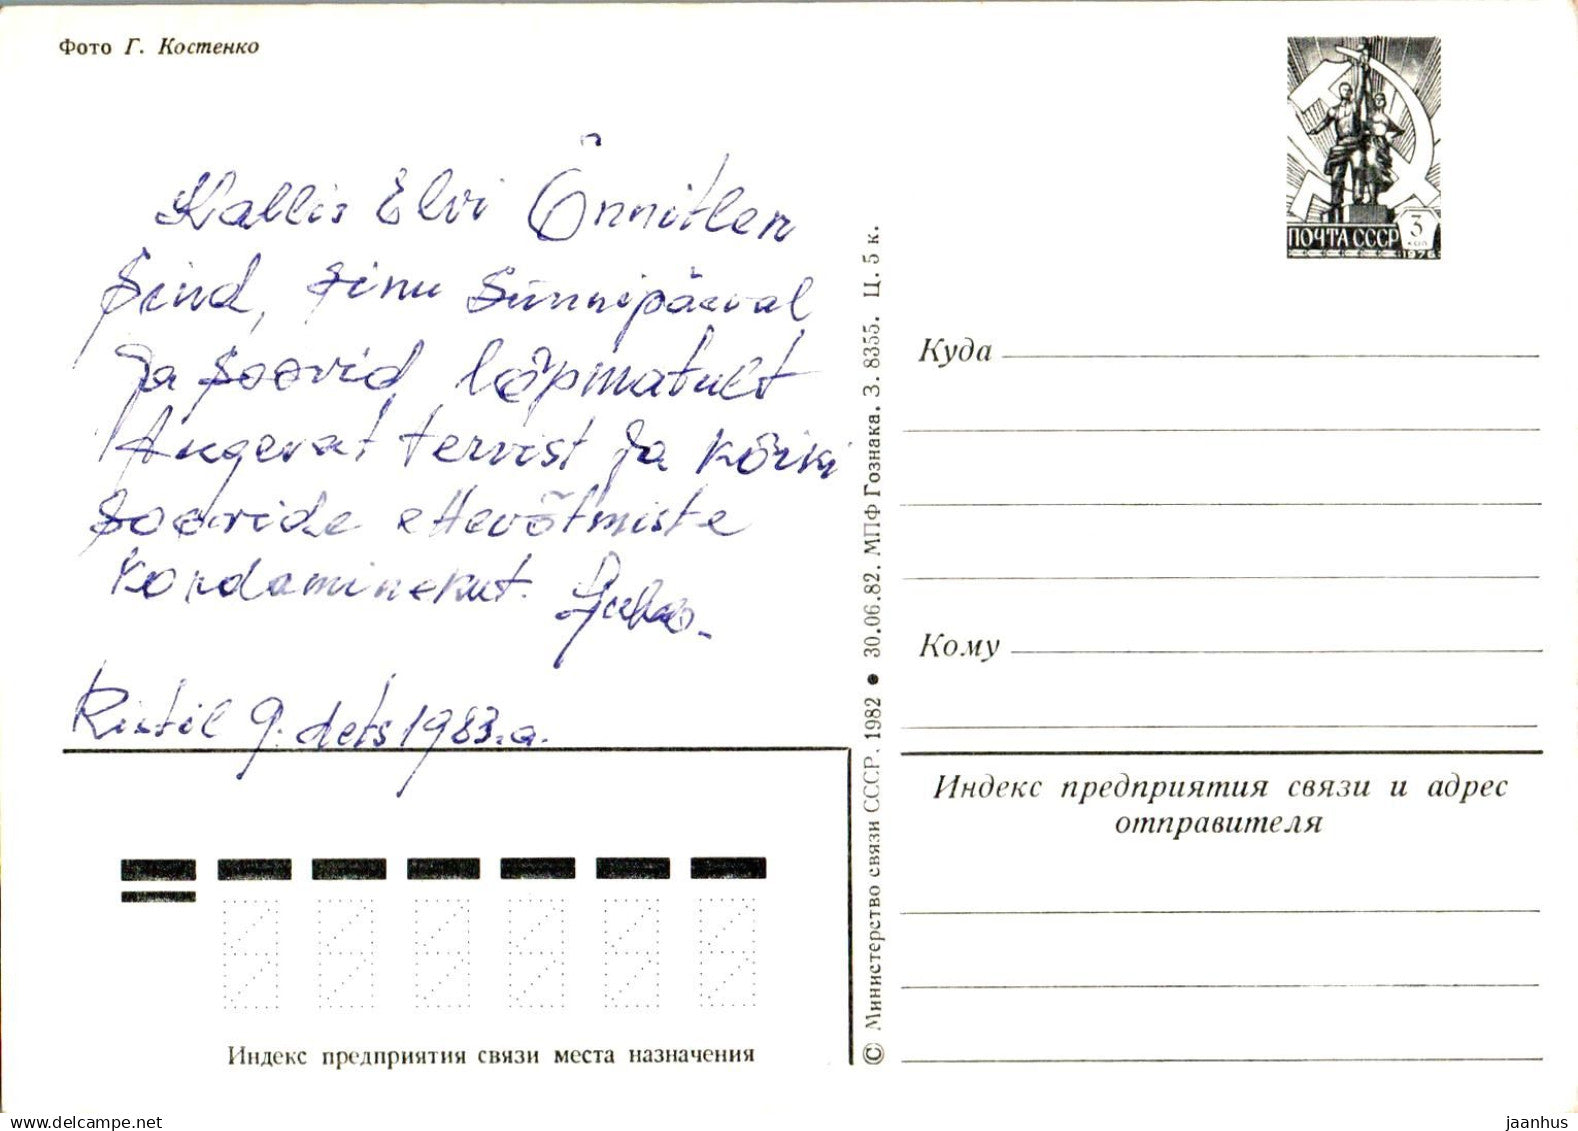 Фото Г. Костенко
Kallis Elvi Õnnitlen
Sind, sinu Sünnipäeval
Ja soovid lõpmatult
tugevat tervist ja kõiki
soovide ettevõtmiste
kordaminekut.
Ristil 9. dets 1983.a.
Индекс предприятия связи места назначения
© Министерство связи СССР. 1982 • 30.06.82. МПФ Гознака. З. 8355. Ц. 5 к.
ПОЧТА СССР 3 коп 1976
Куда
Кому
Индекс предприятия связи и адрес
отправителя
jaanhus
www.delcampe.net